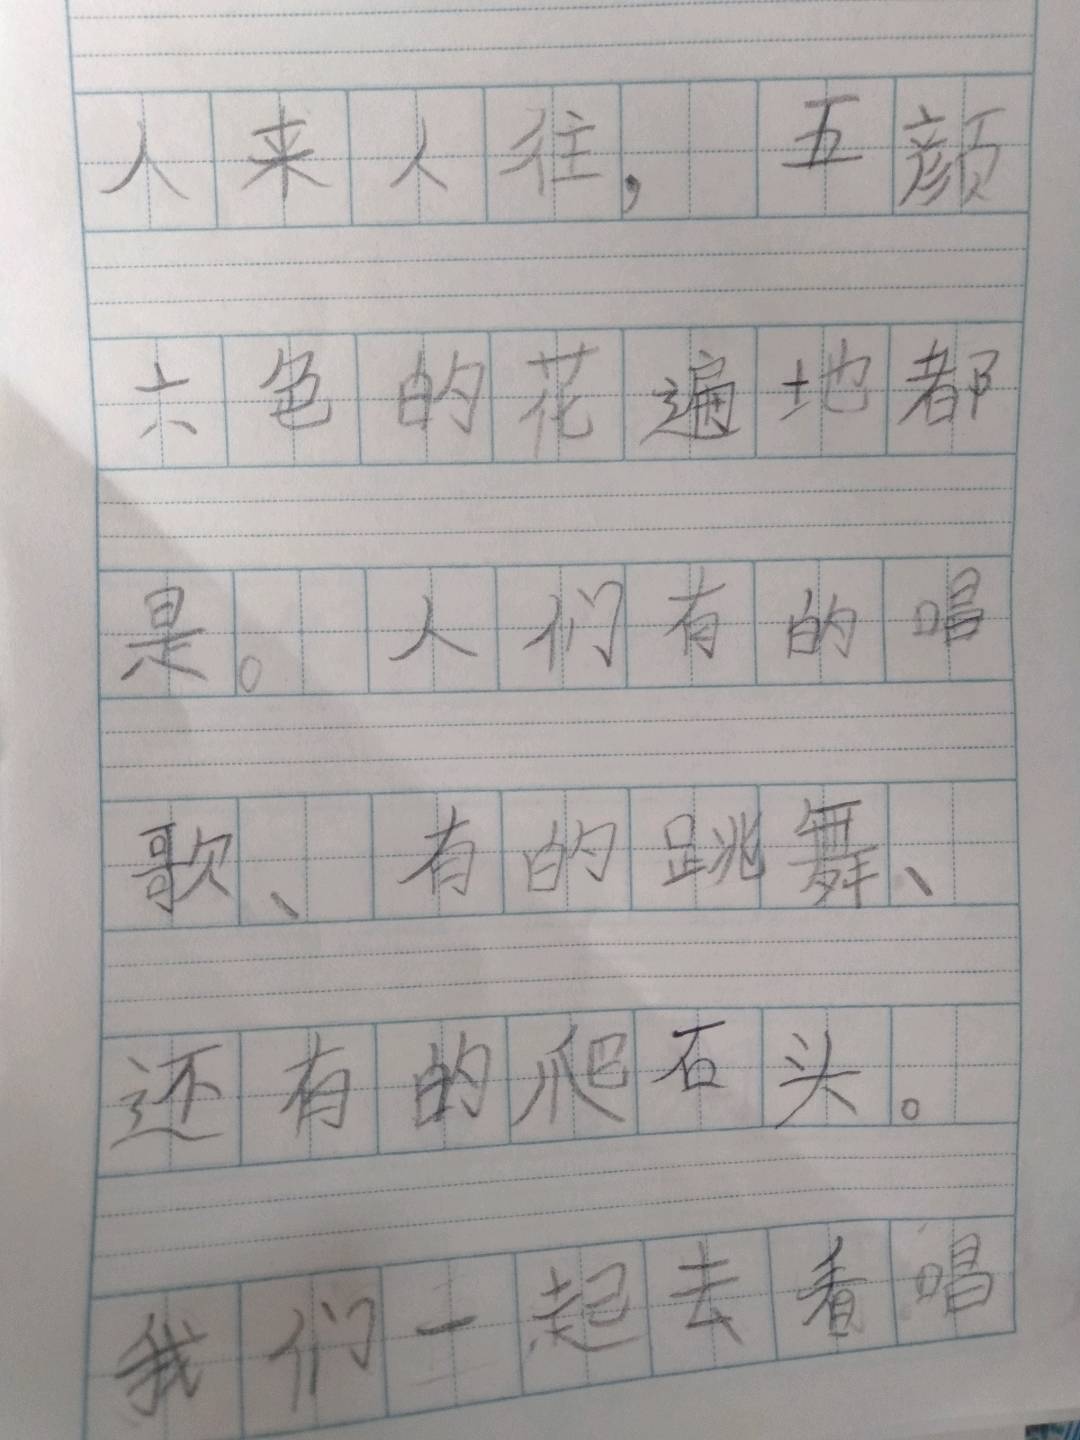 人来人往，五颜
六色的花遍地都
是。人们有的唱
歌、有的跳舞、
还有的爬石头。
我们一起去看唱